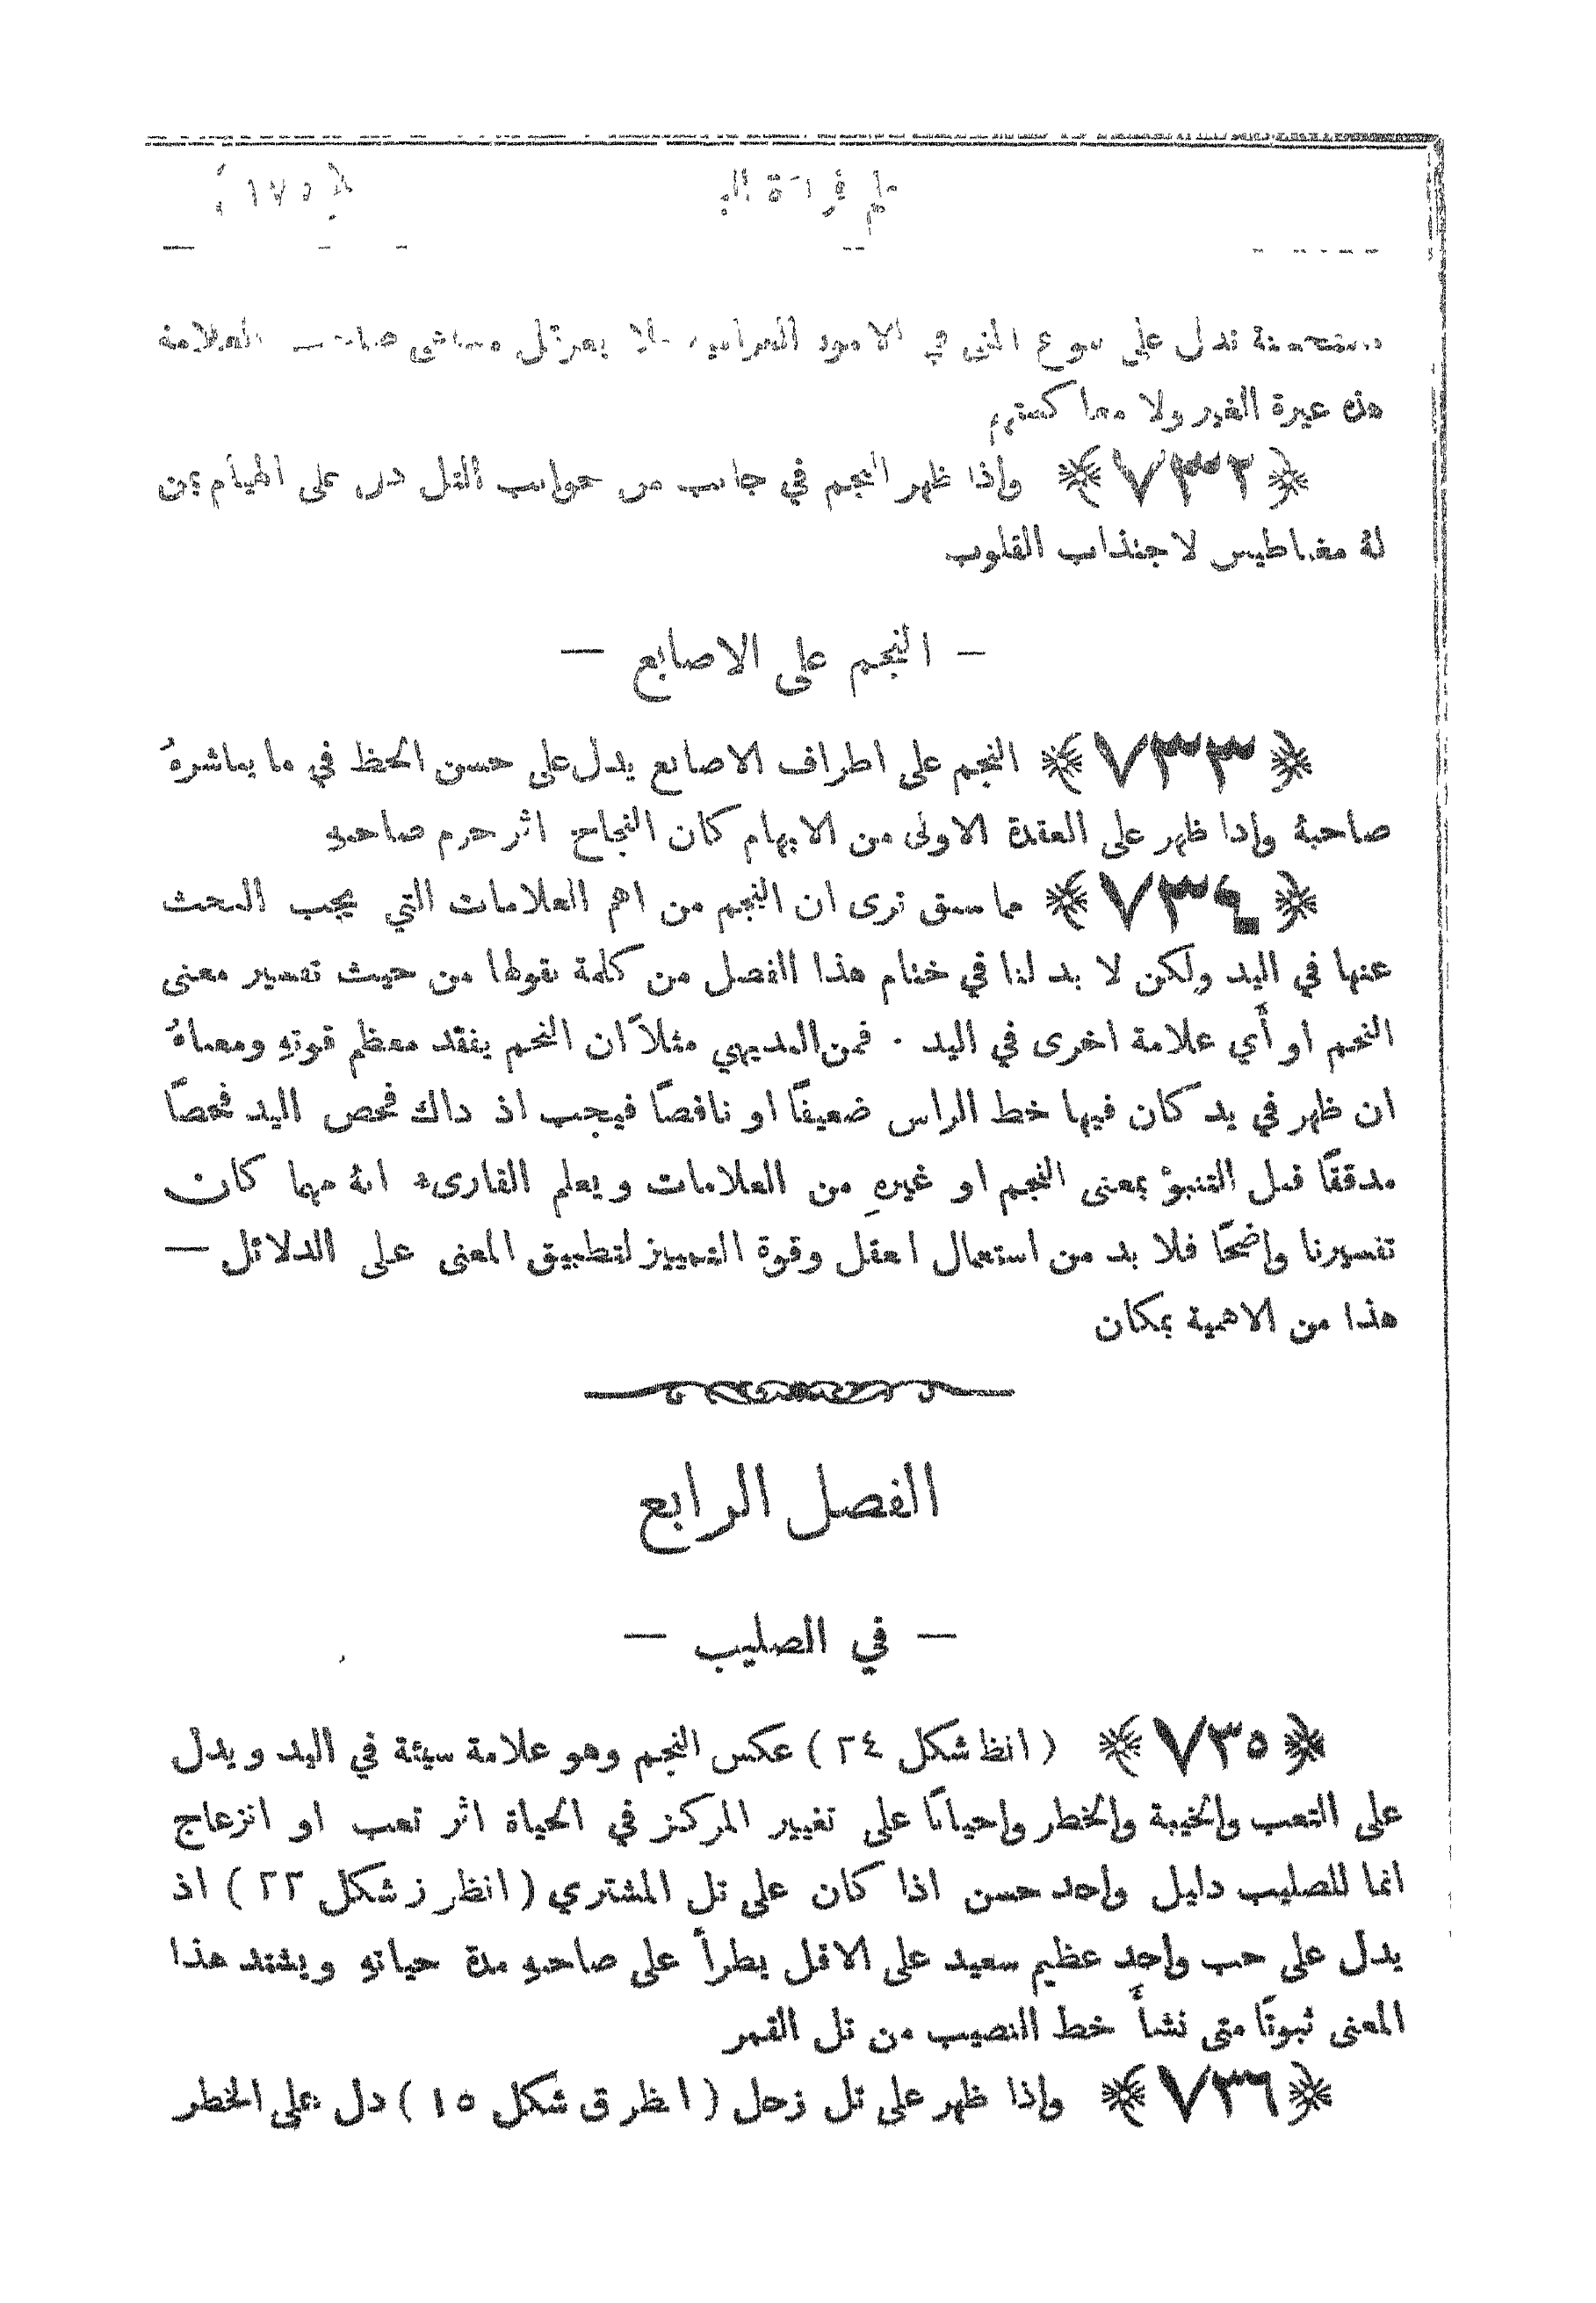 علم قراءة اليد ﴿ ١٧٥ ﴾
مستحسنة تدل على بلوغ المنى في الامور الغرامية فلا يعرقل مساعي صاحب العلامة
هذه غيرة الغير ولا معاكستهم
﴿ ٧٣٢ ﴾ واذا ظهر النجم في جانب من جوانب التل دل على الهيام بمن
لهُ مغناطيس لاجتذاب القلوب
— النجم على الاصابع —
﴿ ٧٣٣ ﴾ النجم على اطراف الاصابع يدل على حسن الحظ في ما يباشرهُ
صاحبهُ واذا ظهر على العقدة الاولى من الابهام كان النجاح اثر حزم صاحبهِ
﴿ ٧٣٤ ﴾ مما سبق ترى ان النجم من اهم العلامات التي يجب البحث
عنها في اليد ولكن لا بد لنا في ختام هذا الفصل من كلمة نقولها من حيث تفسير معنى
النجم او أي علامة اخرى في اليد . فمن البديهي مثلاً ان النجم يفقد معظم قوتهِ ومعناهُ
ان ظهر في يد كان فيها خط الراس ضعيفًا او ناقصًا فيجب اذ ذاك فحص اليد فحصًا
مدققًا قبل التنبوْ بمعنى النجم او غيرهِ من العلامات ويعلم القارىء انهُ مهما كان
تفسيرنا واضحًا فلا بد من استعمال العقل وقوة التمييز لتطبيق المعنى على الدلائل —
هذا من الاهمية بمكان
الفصل الرابع
— في الصليب —
﴿ ٧٣٥ ﴾ ( انظ شكل ٢٤ ) عكس النجم وهو علامة سيئة في اليد ويدل
على التعب والخيبة والخطر واحيانًا على تغيير المركز في الحياة اثر تعب او انزعاج
انما للصليب دليل واحد حسن اذا كان على تل المشتري ( انظر ز شكل ٢٢ ) اذ
يدل على حب واحد عظيم سعيد على الاقل يطرأ على صاحبهِ مدة حياتهِ ويشتد هذا
المعنى ثبوتًا متى نشأ خط النصيب من تل القمر
﴿ ٧٣٦ ﴾ واذا ظهر على تل زحل ( انظر ق شكل ١٥ ) دل على الخطر